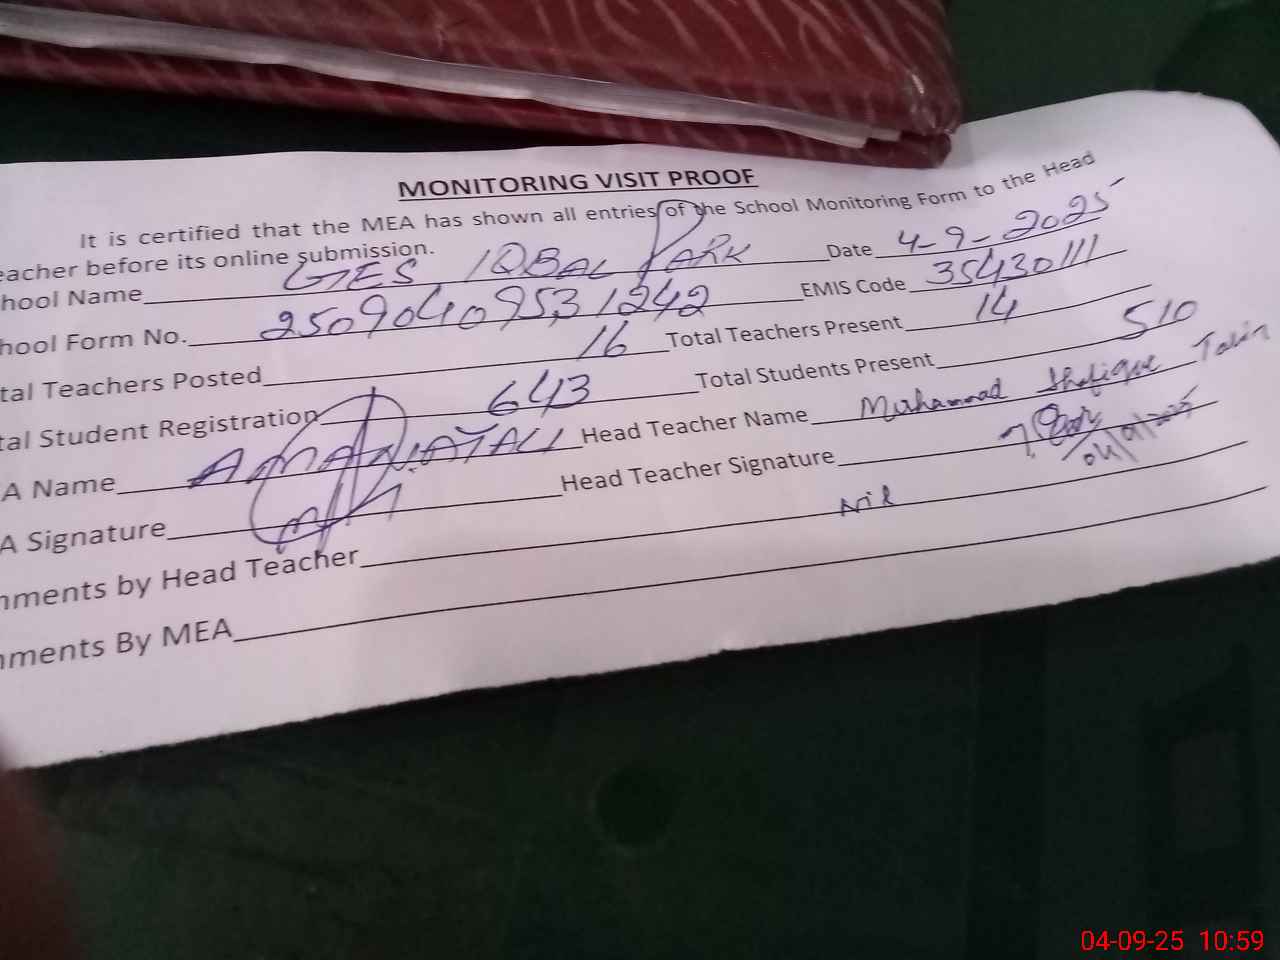 MONITORING VISIT PROOF
It is certified that the MEA has shown all entries of the School Monitoring Form to the Head
eacher before its online submission.
hool Name GES IQBAL PARK Date 4-9-2025
hool Form No. 25090409531242 EMIS Code 35430111
tal Teachers Posted 16 Total Teachers Present 14
tal Student Registration 643 Total Students Present 510
A Name AMANAT ALI Head Teacher Name Muhammad Shafique
A Signature Head Teacher Signature 04/09/2025
mments by Head Teacher Nil
mments By MEA
04-09-25 10:59